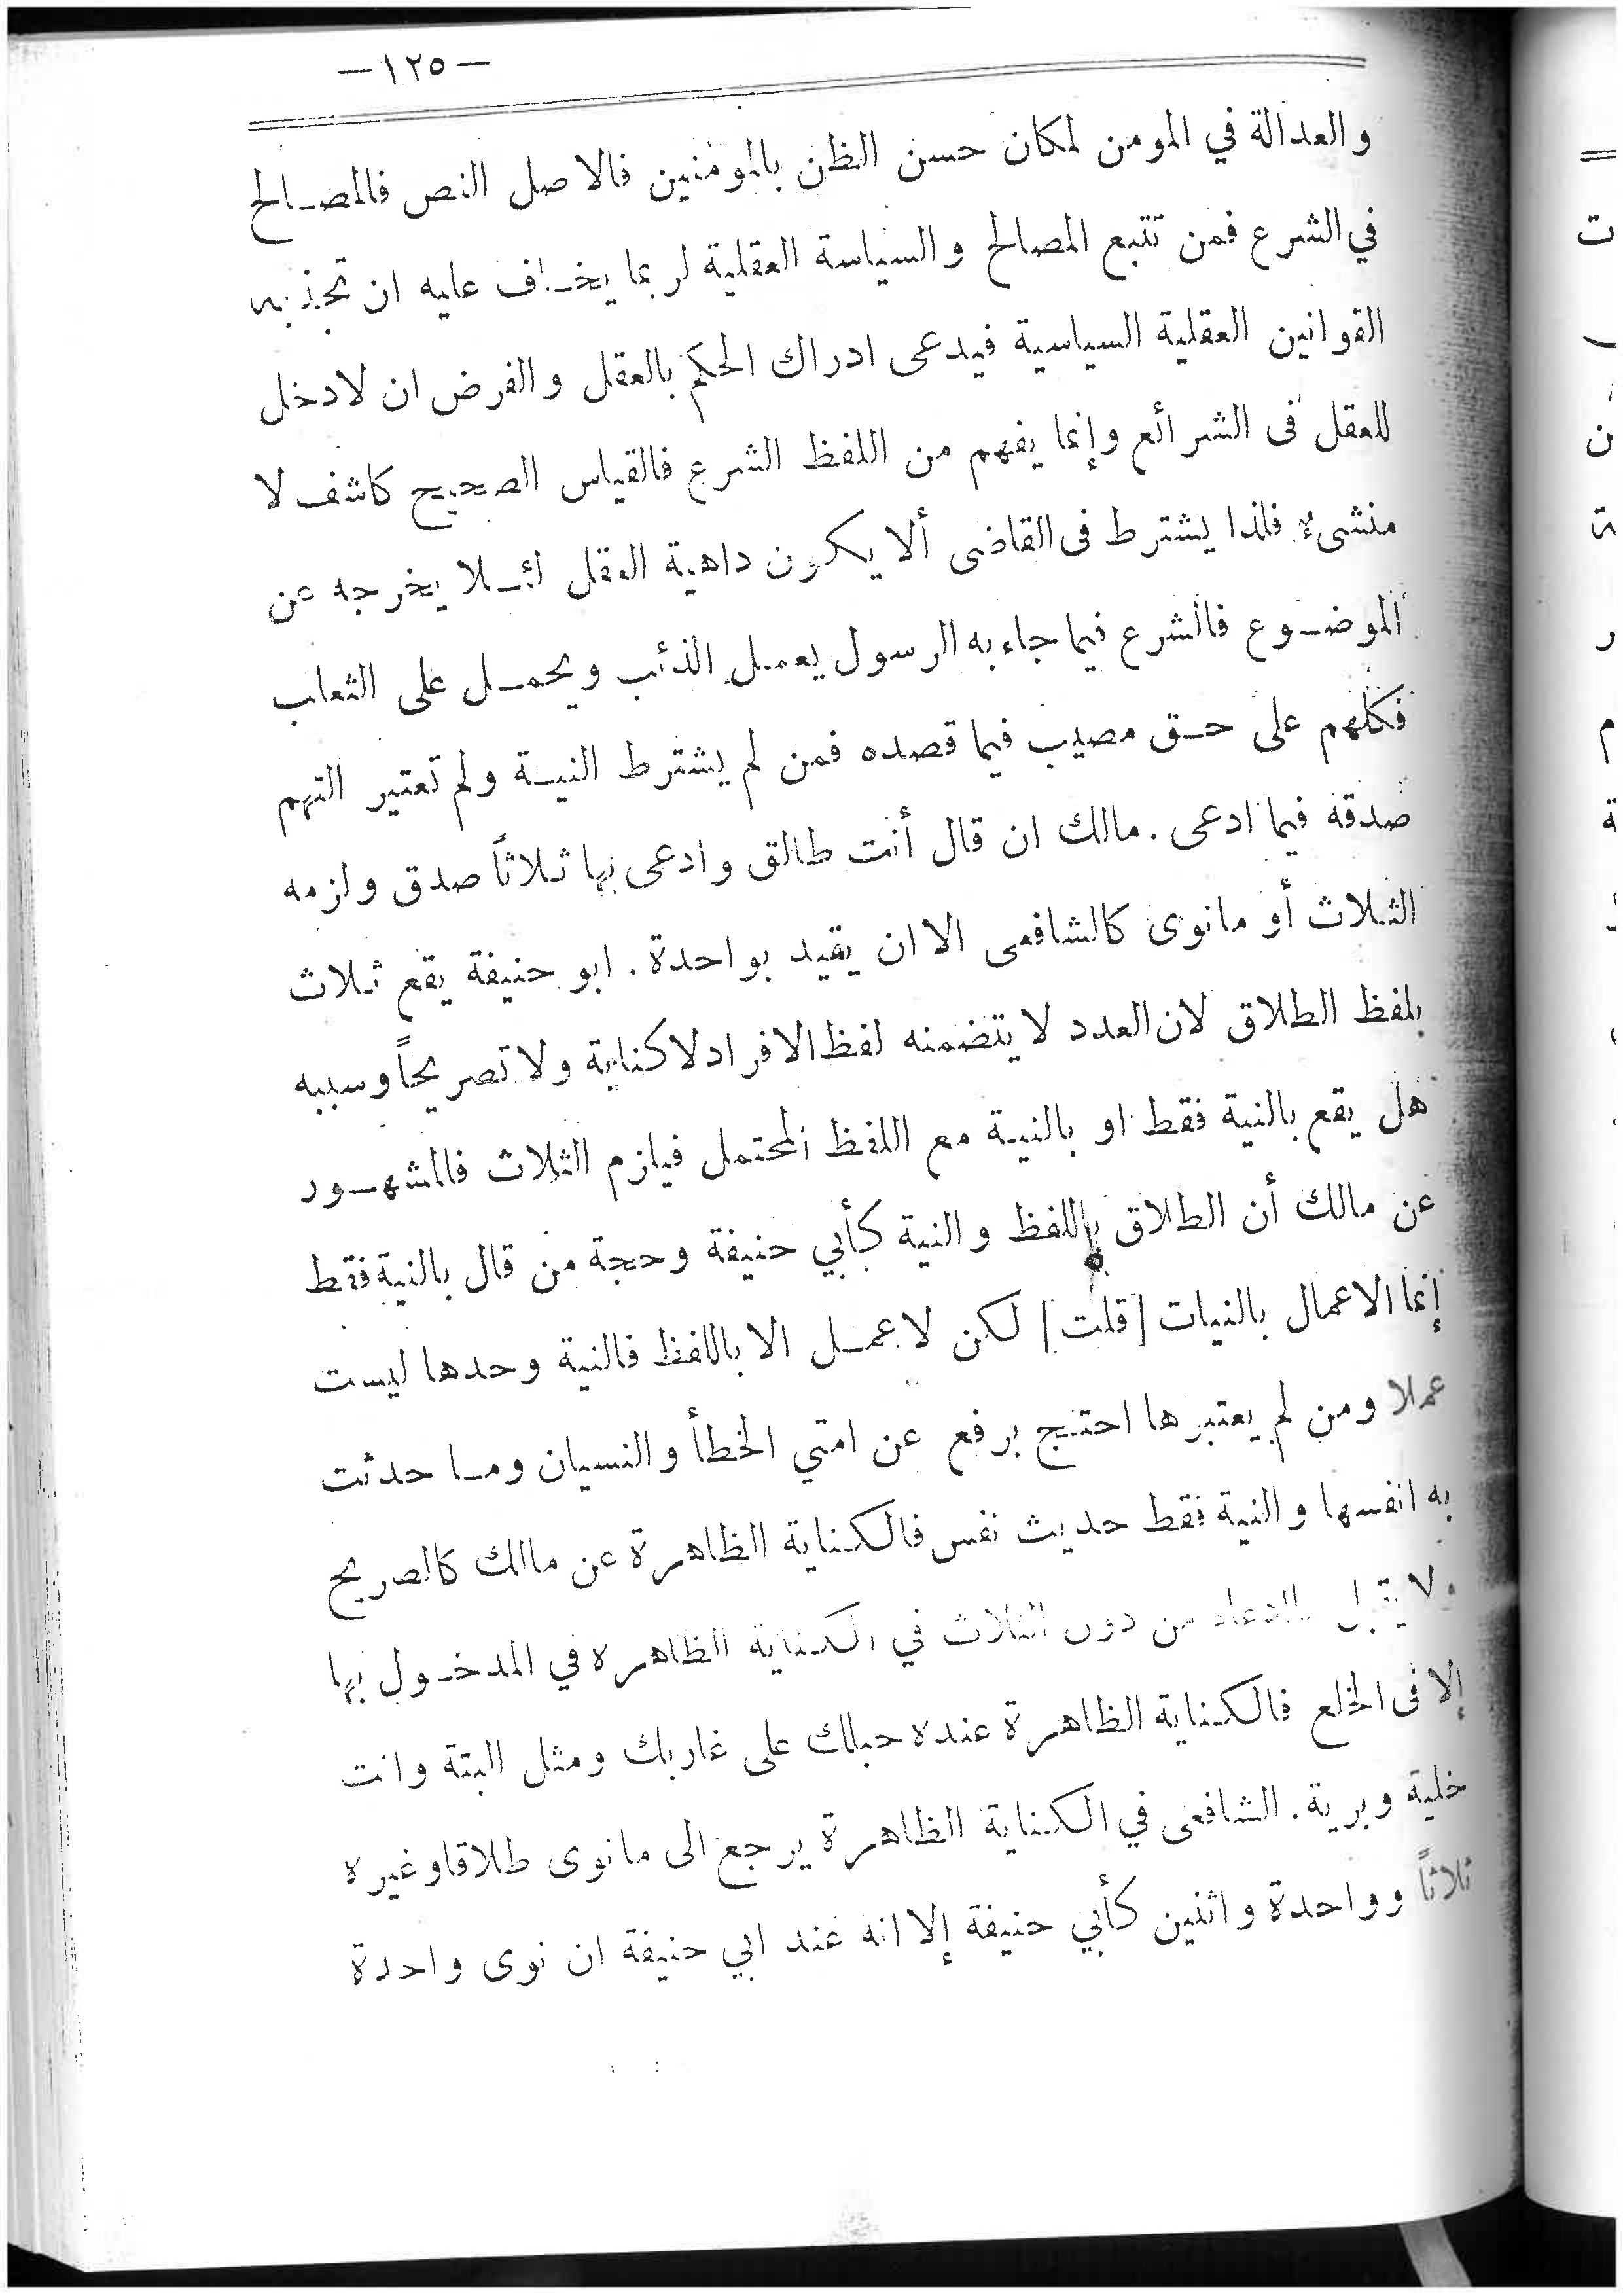 —١٢٥—
والعدالة في المومن لمكان حسن الظن بالمومنين فالاصل النص فالمصالح
في الشرع فمن تتبع المصالح والسياسة العقلية لربما يخاف عليه ان تجذبه
القوانين العقلية السياسية فيدعى ادراك الحكم بالعقل والفرض ان لادخل
للعقل فى الشرائع وإنما يفهم من اللفظ الشرع فالقياس الصحيح كاشف لا
منشىء فلذا يشترط فى القاضى ألا يكون داهية العقل لئلا يخرجه عن
الموضوع فالشرع فيما جاء به الرسول يعمل الذئب ويحمل على الثعلب
فكلهم على حق مصيب فيما قصده فمن لم يشترط النية ولم تعتبر التهم
صدقه فيما ادعى . مالك ان قال أنت طالق وادعى بها ثلاثاً صدق ولزمه
الثلاث أو مانوى كالشافعى الا ان يقيد بواحدة . ابو حنيفة يقع ثلاث
بلفظ الطلاق لان العدد لا يتضمنه لفظ الافراد لا كناية ولا تصريحاً وسببه
هل يقع بالنية فقط او بالنية مع اللفظ المحتمل فيلزم الثلاث فالمشهور
عن مالك أن الطلاق باللفظ والنية كأبي حنيفة وحجة من قال بالنية فقط
إنما الاعمال بالنيات [قلت] لكن لا عمل الا باللفظ فالنية وحدها ليست
عملا ومن لم يعتبرها احتج برفع عن امتي الخطأ والنسيان وما حدثت
به انفسها والنية فقط حديث نفس فالكناية الظاهرة عن مالك كالصريح
ولا يقبل من دون الثلاث في الكناية الظاهره في المدخول بها
إلا فى الخلع فالكناية الظاهرة عنده حبلك على غاربك ومثل البتة وانت
خلية وبرية . الشافعى في الكناية الظاهرة يرجع الى مانوى طلاقا وغيره
ثلاثاً وواحدة واثنين كأبي حنيفة إلا انه عند ابي حنيفة ان نوى واحدة